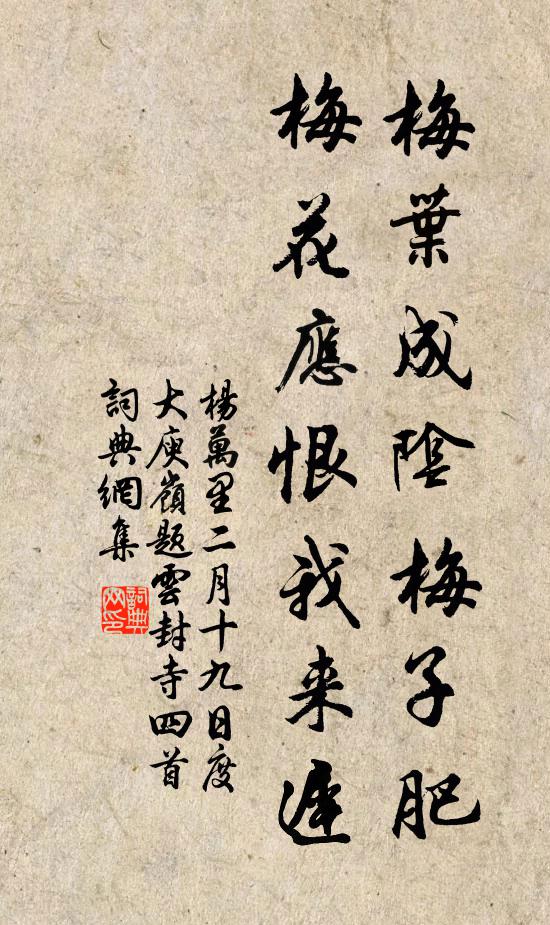 梅葉成陰梅子肥
梅花應恨我来遲
楊萬里二月十九日度
大庾嶺題雲封寺四首
詞典網集
詞典
网印